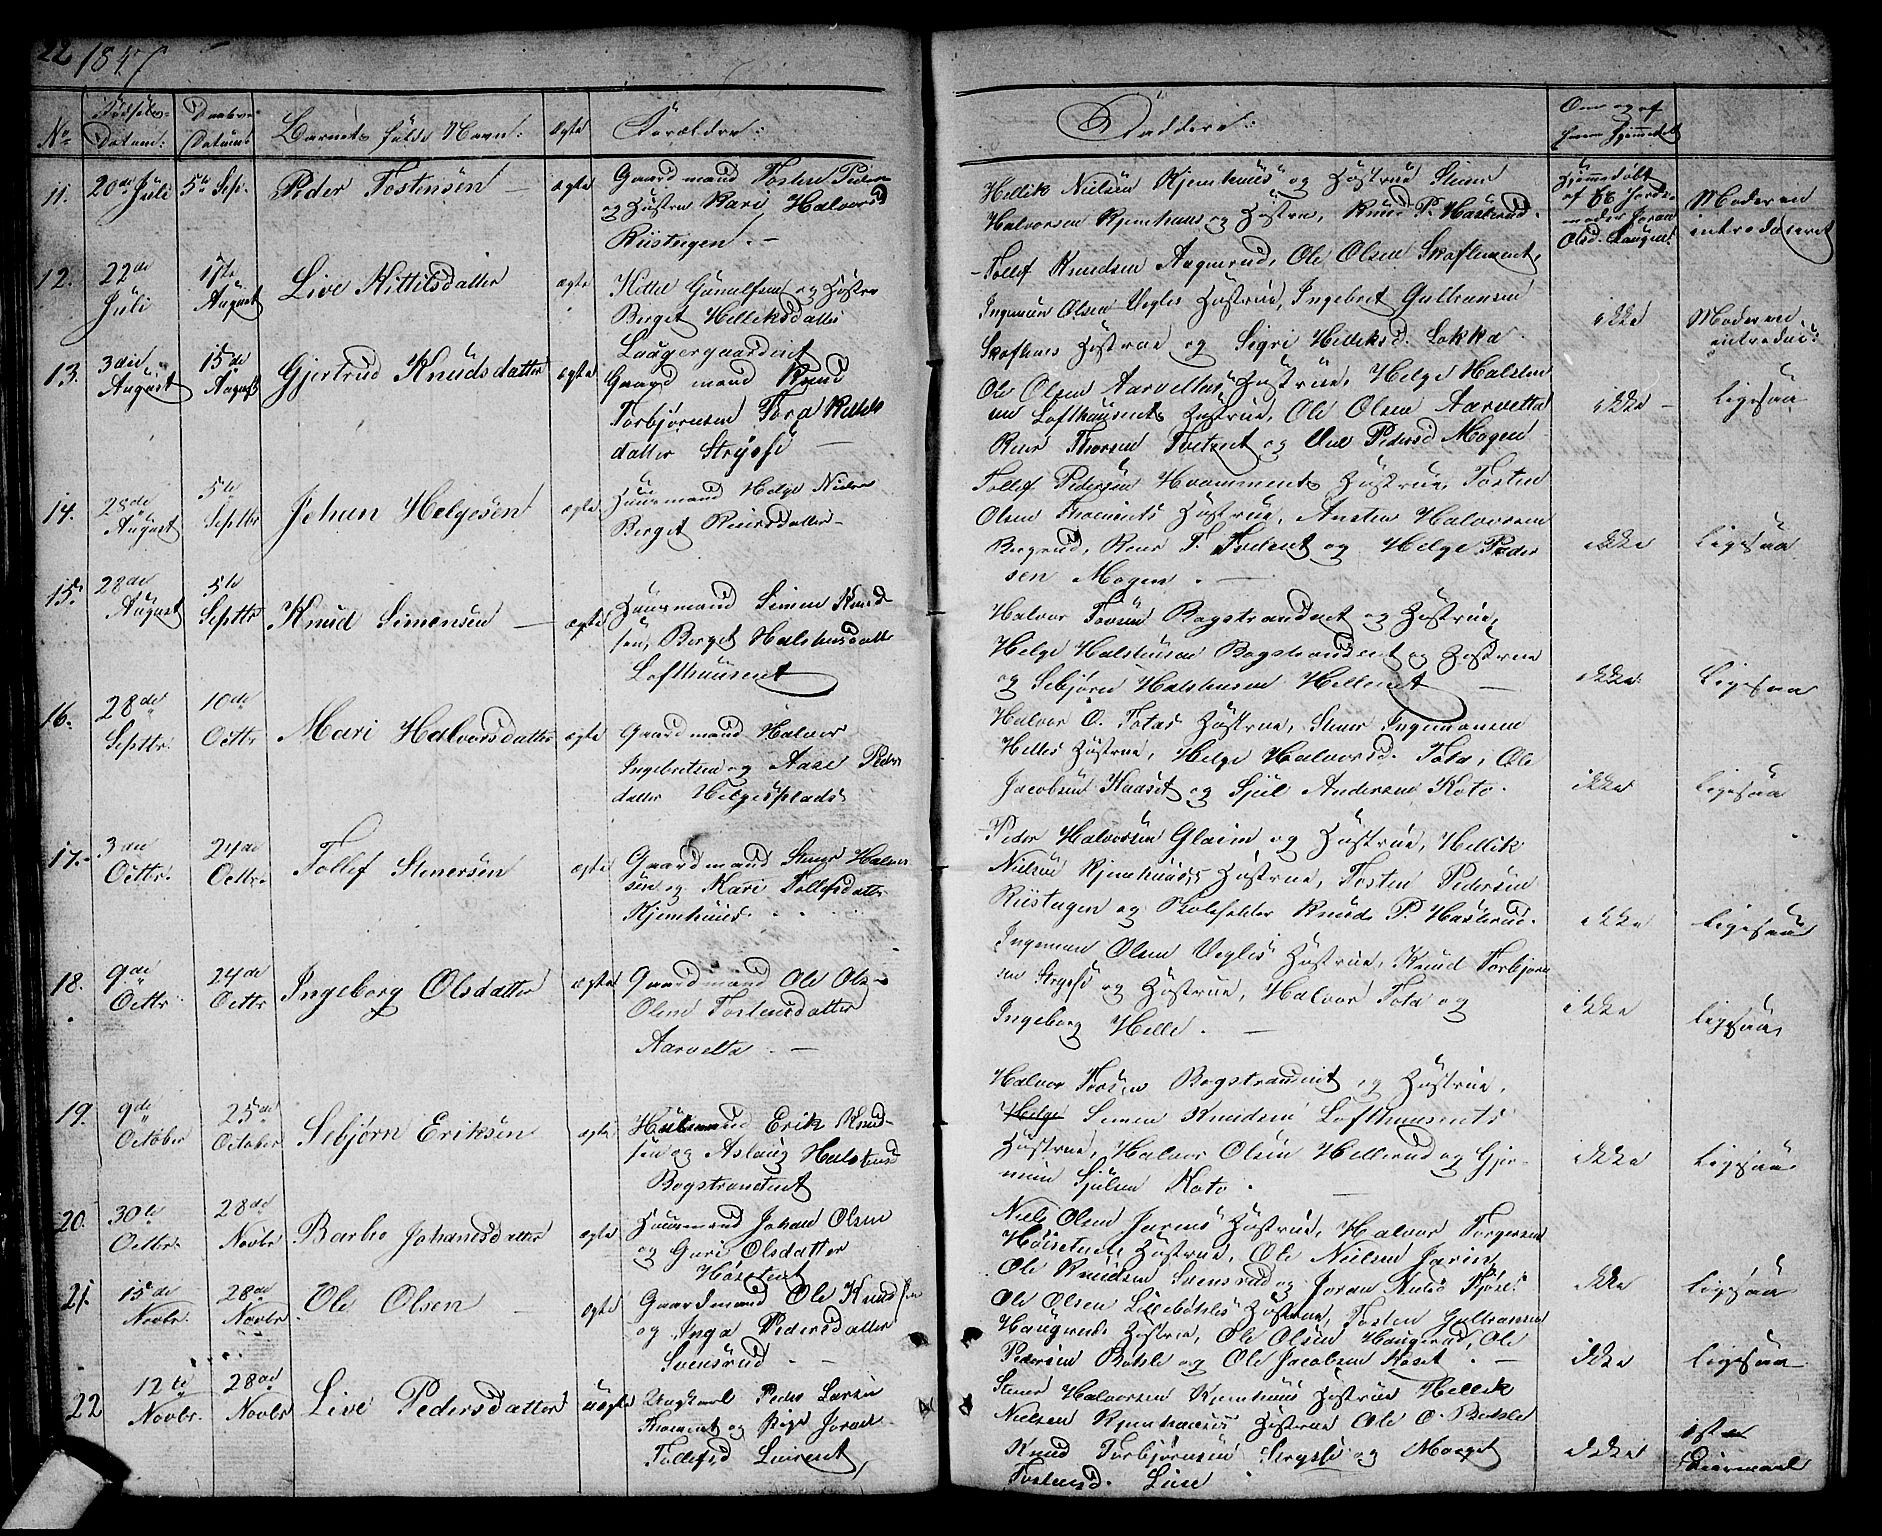 22 1847
No
Fødsels-
Datum:
Daabs-
Datum
Barnets fulde Navn:
ægte
Forældre:
Faddere:
Om og af
hvem hjemmedøbt
11. 20de Juli 5te Sep. Peder Tostensen — ægte
Gaardmand Tosten Peders
og Hustru Kari Halvorsd
Riistugen. —
Hellik Nielsen Kjemhuus og Hustrue Stener
Halvorsen Kjemhuus og Hustru, Knud P. Haslerud.
Hjemmedøbt
af
moder Joran
Olsd. Haugen
Moderen
introduceret
12. 22de Juli 17te August Live Kittilsdatter ægte
Kittel Gunulfsen og Hustru
Berget Helliksdatter
Laagergaardene
Tollef Knudsen Aagmerud, Ole Olsen Skoflement,
Ingeman Olsen Vegles Hustrue, Ingebret Gulbransen
Skoflems Hustrue og Sigri Helliksd. Lokka.
ikke
Moderen
introduc:
13. 3die August 15de August Gjertrud Knudsdatter ægte
Gaardmand Knud
Torbjørnsen Tora Kittels
datter Strysse —
Ole Olsen Aarvettas Hustrue, Helge Halsten
sen Lofthuusents Hustrue, Ole Olsen Aarvetta
Reier Thorsen Tvetenet og Une Pedersd Mogen
ikke —
ligesaa
14. 28de August 5te Septbr Johan Helgesen ægte
Huusmand Helge Nielsen
Berget Reiersdatter —
Tollef Pedersen Hvamments Hustrue, Tosten
Olsen Hustrue, Austen Halvorsen
Bergerud, Reier T. Tvetenet og Helge Peder
sen Mogen. —
ikke
ligesaa
15. 28de August 5te Septbr Knud Simensen — ægte
Huusmand Simen Knud
sen, Berget Halstensdatter
Lofthuusent
Halvor Bogstrandnet og Hustrue,
Helge Halstensen Bogstrandent og Hustrue
og Sebjørn Halstensen Hellenet —
ikke
ligesaa
16. 28de Septbr. 10de Octbr Mari Halvorsdatter ægte
Gaardmand Halvor
Ingebretsen og Aase Peders
datter Helgesplads
Halvor O. Totas Hustrue, Stener Ingemansen
Helles Hustrue, Helge Halvorsd. Tota, Ole
Jacobsen Kaaset og Sjul Andersen Koto.
ikke
ligesaa
17. 3die Octbr. 24de Octbr. Tollef Stenersen ægte
Gaardmand Stener Halvor
sen og Kari Tollefsdatter
Kjemhuus.
Peder Halvorsen Glaim og Hustrue, Hellik
Nielsens Kjemhuuses Hustrue, Tosten Pedersen
Riistugen og Skoleholder Knud P. Haslerud.
ikke
ligesaa
18. 9de Octbr. 24de Octbr Ingeborg Olsdatter ægte
Gaardmand Ole Ols-
Olene Tostensdatter
Aarvetta. —
Ingeman Olsen Vegles Hustrue, Knud Torbjørn
sen Strysse og Hustrue, Halvor Tota og
Ingeborg Helle. —
ikke
ligesaa
19. 9de October 25de October Sebjørn Eriksen ægte
Huusmand Erik Knud-
sen og Aslaug Halstensd
Bogstrandnet
Halvor Bogstrandnet og Hustrue,
Helge Simen Knudsen Lofthuusents
Hustrue, Halvor Olsen Hellerud og Gjer-
mun Sjulsen Koto. —
ikke
ligesaa
20. 30te Octbr. 28de Novbr Barbo Johansdatter ægte
Huusmand Johan Olsen
og Guri Olsdatter
Høisetent
Niels Olsen Jørens Hustrue, Halvor Torgersen
Høisetent, Hustrue, Ole Nielsen Jørin,
Ole Knudsen Svensrud og Joran Niels
ikke
ligesaa
21. 15de Novbr. 28de Novbr. Ole Olsen — ægte
Gaardmand Ole Knudsen
og Inga Pedersdatter
Svensrud —
Ole Olsen Lillebøhles Hustrue, Tosten Gulbransen
Haugeruds Hustrue, Ole Olsen Haugerud, Ole
Pedersen Bøhle og Ole Jacobsen Kaaset. —
ikke
ligesaa
22 12te Novbr. 28de Novbr Live Pedersdatter uægte
Ungkarl Peder Larsen
og Pige Joran
Tollefsd Livrenet
Stener Halvorsen Kjemhuus Hustrue Hellik
Nielsen Kjemhuuses Hustrue Ole O. Bøhle
Knud Torbjørnsen Strysse og Marget
Tostensd. Lien.
ikke
1ste
Leiermaal